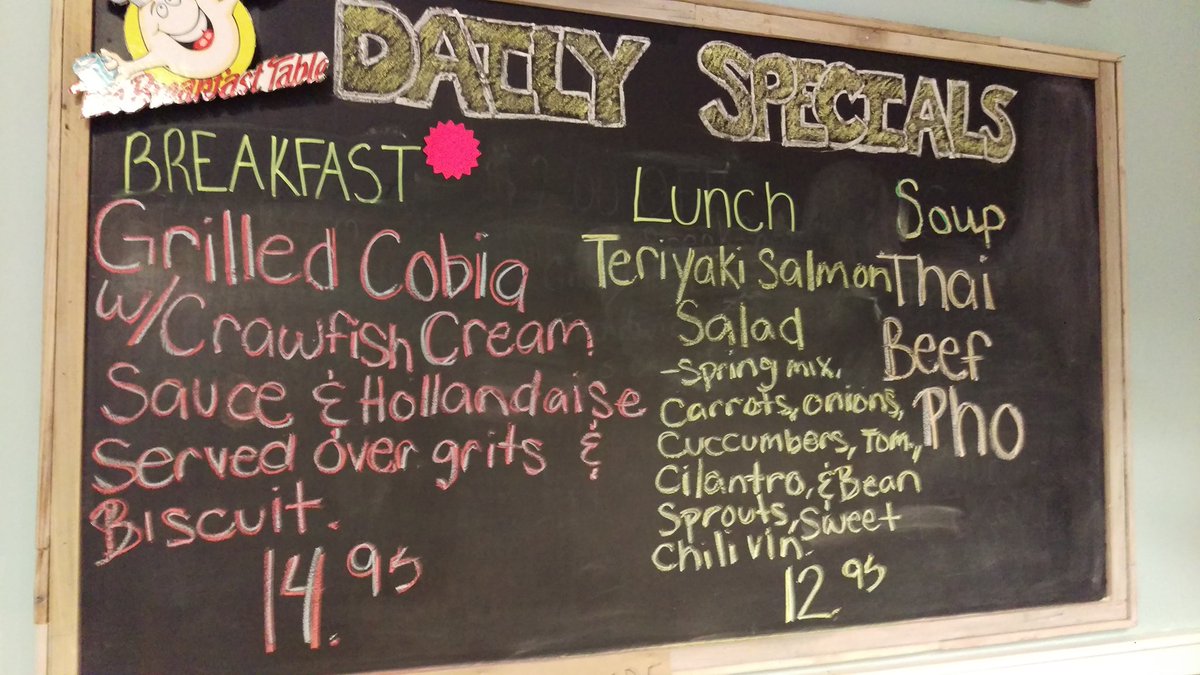 Breakfast Table
DAILY SPECIALS
BREAKFAST
Grilled Cobia
w/Crawfish Cream
Sauce & Hollandaise
Served over grits &
Biscuit.
14.95
Lunch
Teriyaki Salmon
Salad
-Spring mix,
Carrots, onions,
Cuccumbers, Tom.,
Cilantro, & Bean
Sprouts, Sweet
Chili vin.
12.95
Soup
Thai
Beef
Pho